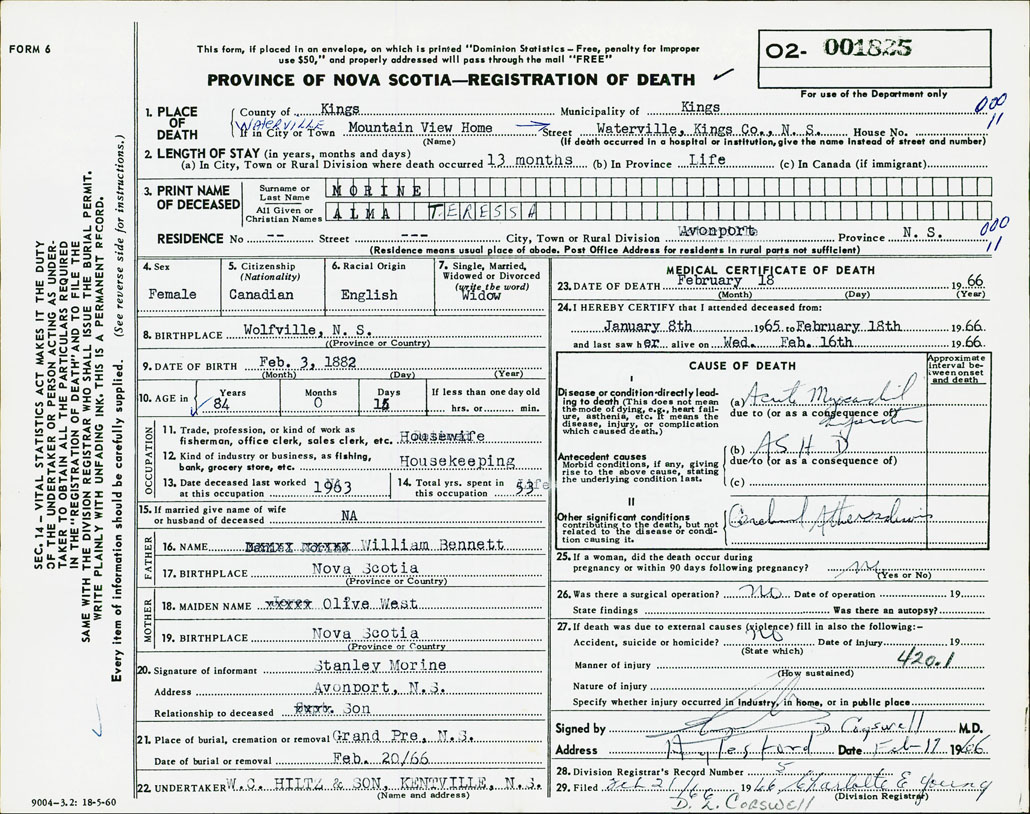 FORM 6
This form, if placed in an envelope, on which is printed "Dominion Statistics – Free, penalty for improper
use $50," and properly addressed will pass through the mail "FREE"
PROVINCE OF NOVA SCOTIA—REGISTRATION OF DEATH ✓
O2- 001825
For use of the Department only
1. PLACE OF DEATH
County of Kings Municipality of Kings 000
WATERVILLE 11
If in City or Town Mountain View Home → Street Waterville, Kings Co., N. S. House No.
(Name) (If death occurred in a hospital or institution, give the name instead of street and number)
2. LENGTH OF STAY (in years, months and days)
(a) In City, Town or Rural Division where death occurred 13 months (b) In Province Life (c) In Canada (if immigrant)
3. PRINT NAME OF DECEASED
Surname or Last Name MORINE
All Given or Christian Names ALMA TERESSA
RESIDENCE No -- Street --- City, Town or Rural Division Avonport Province N. S. 000 11
(Residence means usual place of abode. Post Office Address for residents in rural parts not sufficient)
4. Sex Female
5. Citizenship (Nationality) Canadian
6. Racial Origin English
7. Single, Married, Widowed or Divorced (write the word) Widow
8. BIRTHPLACE Wolfville, N. S.
(Province or Country)
9. DATE OF BIRTH Feb. 3, 1882
(Month) (Day) (Year)
10. AGE in Years Months Days If less than one day old
✓ 84 0 15 hrs. or min.
OCCUPATION
11. Trade, profession, or kind of work as
fisherman, office clerk, sales clerk, etc. Housewife
12. Kind of industry or business, as fishing,
bank, grocery store, etc. Housekeeping
13. Date deceased last worked at this occupation 1963
14. Total yrs. spent in this occupation 53
15. If married give name of wife
or husband of deceased NA
FATHER
16. NAME William Bennett
17. BIRTHPLACE Nova Scotia
(Province or Country)
MOTHER
18. MAIDEN NAME Olive West
19. BIRTHPLACE Nova Scotia
(Province or Country)
20. Signature of informant Stanley Morine
Address Avonport, N.S.
Relationship to deceased Son
21. Place of burial, cremation or removal Grand Pre, N.S.
Date of burial or removal Feb. 20/66
22. UNDERTAKER W.C. HILTZ & SON, KENTVILLE, N.S.
(Name and address)
MEDICAL CERTIFICATE OF DEATH
23. DATE OF DEATH February 18 19 66
(Month) (Day) (Year)
24. I HEREBY CERTIFY that I attended deceased from:
January 8th 1965 to February 18th 1966
and last saw her alive on Wed. Feb. 16th 1966
CAUSE OF DEATH
Approximate interval between onset and death
I
Disease or condition directly leading
to death (This does not mean
the mode of dying, e.g., heart failure,
asthenia, etc. It means the
disease, injury, or complication
which caused death.)
(a) Acute Myocardial
due to (or as a consequence of)
Antecedent causes
Morbid conditions, if any, giving
rise to the above cause, stating
the underlying condition last.
(b) A S H D
due to (or as a consequence of)
(c)
II
Other significant conditions
contributing to the death, but not
related to the disease or condition
causing it.
Cerebral Atherosclerosis
25. If a woman, did the death occur during
pregnancy or within 90 days following pregnancy? no
(Yes or No)
26. Was there a surgical operation? No Date of operation 19
State findings Was there an autopsy?
27. If death was due to external causes (violence) fill in also the following:-
No
Accident, suicide or homicide? Date of injury 19
(State which)
Manner of injury 420.1
(How sustained)
Nature of injury
Specify whether injury occurred in industry, in home, or in public place
Signed by D Cogswell M.D.
Address Aylesford Date Feb 19 1966
28. Division Registrar's Record Number 5
29. Filed Feb 21/66 1966 Charlotte E Young
(Division Registrar)
D. L. COGSWELL
SEC. 14 – VITAL STATISTICS ACT MAKES IT THE DUTY
OF THE UNDERTAKER OR PERSON ACTING AS UNDERTAKER
TO OBTAIN ALL THE PARTICULARS REQUIRED
IN THE "REGISTRATION OF DEATH" AND TO FILE THE
SAME WITH THE DIVISION REGISTRAR WHO SHALL ISSUE THE BURIAL PERMIT.
WRITE PLAINLY WITH UNFADING INK. THIS IS A PERMANENT RECORD.
Every item of information should be carefully supplied. (See reverse side for instructions.)
9004–3.2: 18-5-60